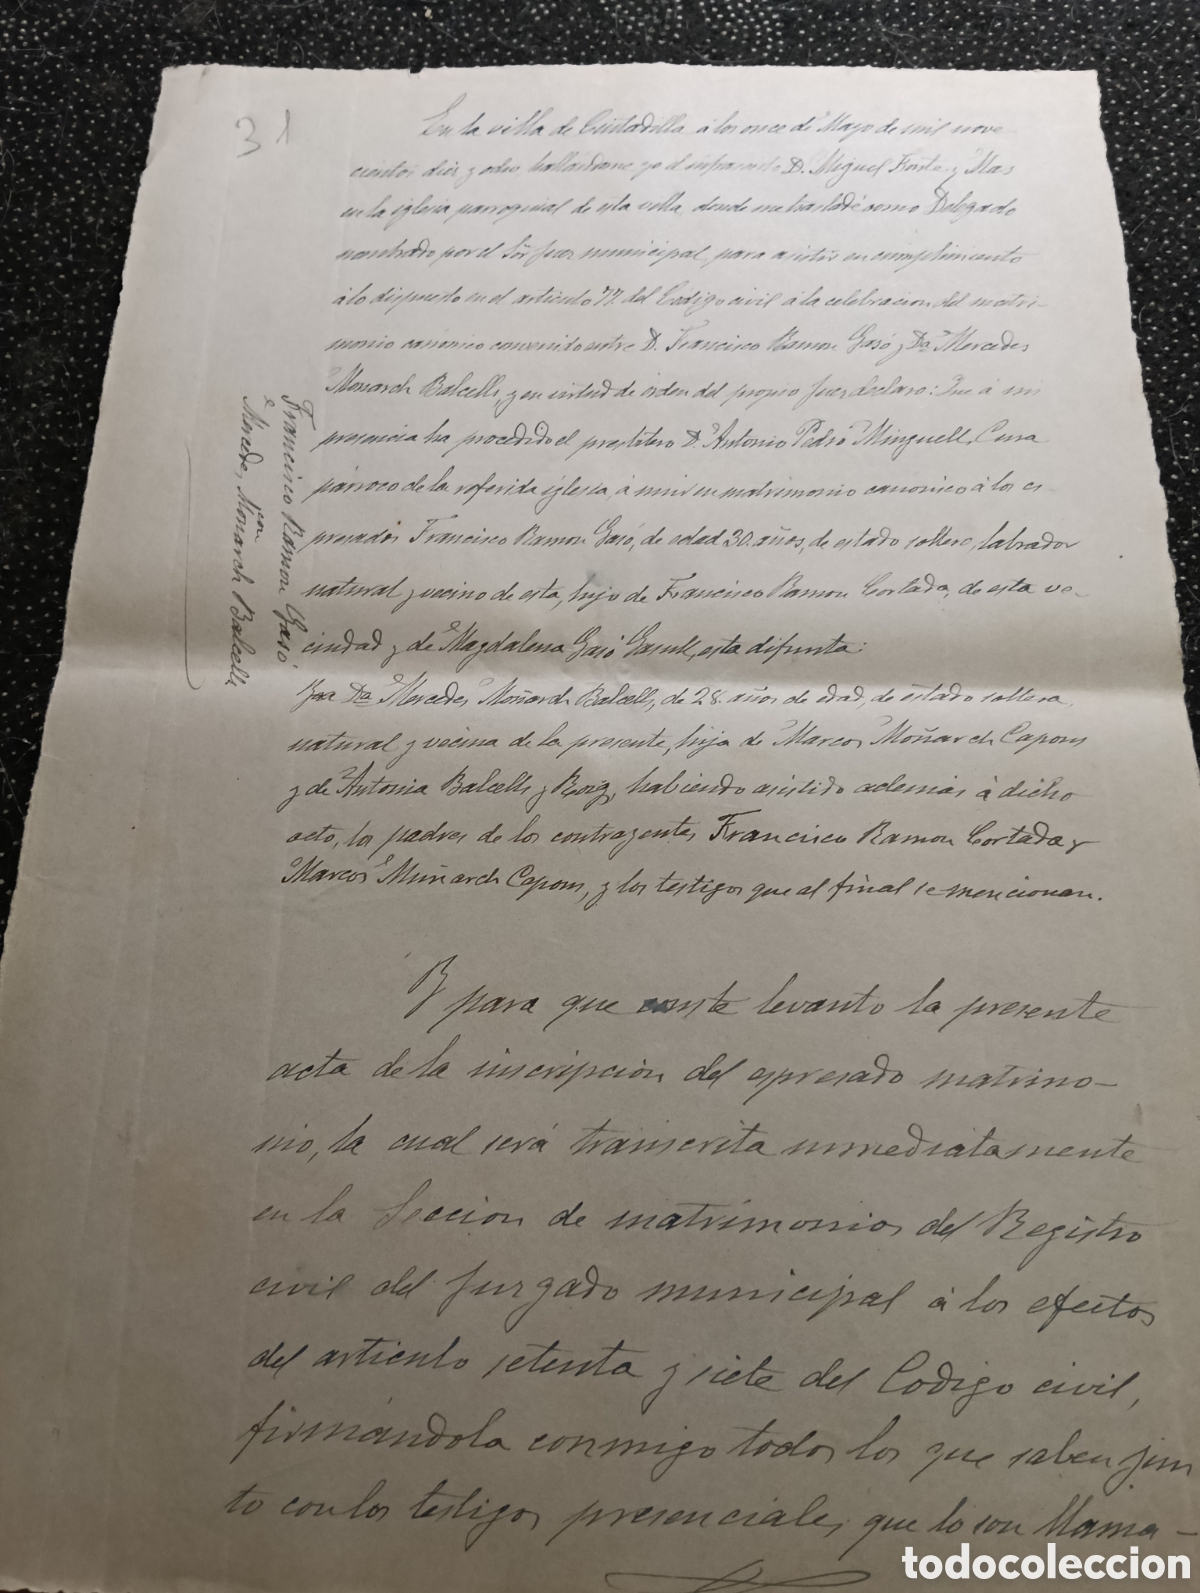 31
En la villa de Ciutadilla á los once de Mayo de mil nove-
cientos diez y ocho hallándome yo el infrascrito D. Miguel Fonte y Mas
en la iglesia parroquial de esta villa, donde me trasladé como Delegado
nombrado por el Sor Juez municipal, para asistir en cumplimiento
á lo dispuesto en el articulo 77 del Codigo civil á la celebracion del matri-
monio canónico convenido entre D. Francisco Ramon Gasó y Da Mercedes
Monarch Balcells, y en virtud de órden del propio Juez declaro: Que á mi
presencia ha procedido el presbitero D. Antonio Pedró Minguell, Cura
párroco de la referida iglesia, á unir en matrimonio canonico á los es-
presados Francisco Ramon Gasó, de edad 30 años, de estado soltero, labrador
natural y vecino de esta, hijo de Francisco Ramon Cortada, de esta ve-
ciudad y de Magdalena Gasó Gasull, esta difunta:
Da Mercedes Moñarch Balcells, de 28 años de edad, de estado soltera,
natural y vecina de la presente, hija de Marcos Moñarch Capons
y de Antonia Balcells y Roig, habiendo asistido ademas á dicho
acto, los padres de los contrayentes Francisco Ramon Cortada y
Marcos Muñarch Capons, y los testigos que al final se mencionan.
Francisco Ramon Gasó
con
Mercedes Monarch Balcells
Y para que conste levanto la presente
acta de la inscripción del espresado matrimo-
nio, la cual será transcrita inmediatamente
en la Seccion de matrimonios del Registro
civil del Juzgado municipal á los efectos
del articulo setenta y siete del Codigo civil,
firmándola conmigo todos los que saben jun
to con los testigos presenciales, que lo son Mama-
todocoleccion